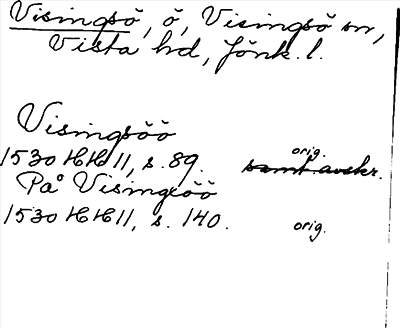 Visingsö, ö, Visingsö sn,
Vista hd, Jönk. l.
Visingsöö
1530 HH 11, s. 89. samt avskr. orig.
På Visingsöö
1530 HH 11, s. 140. orig.